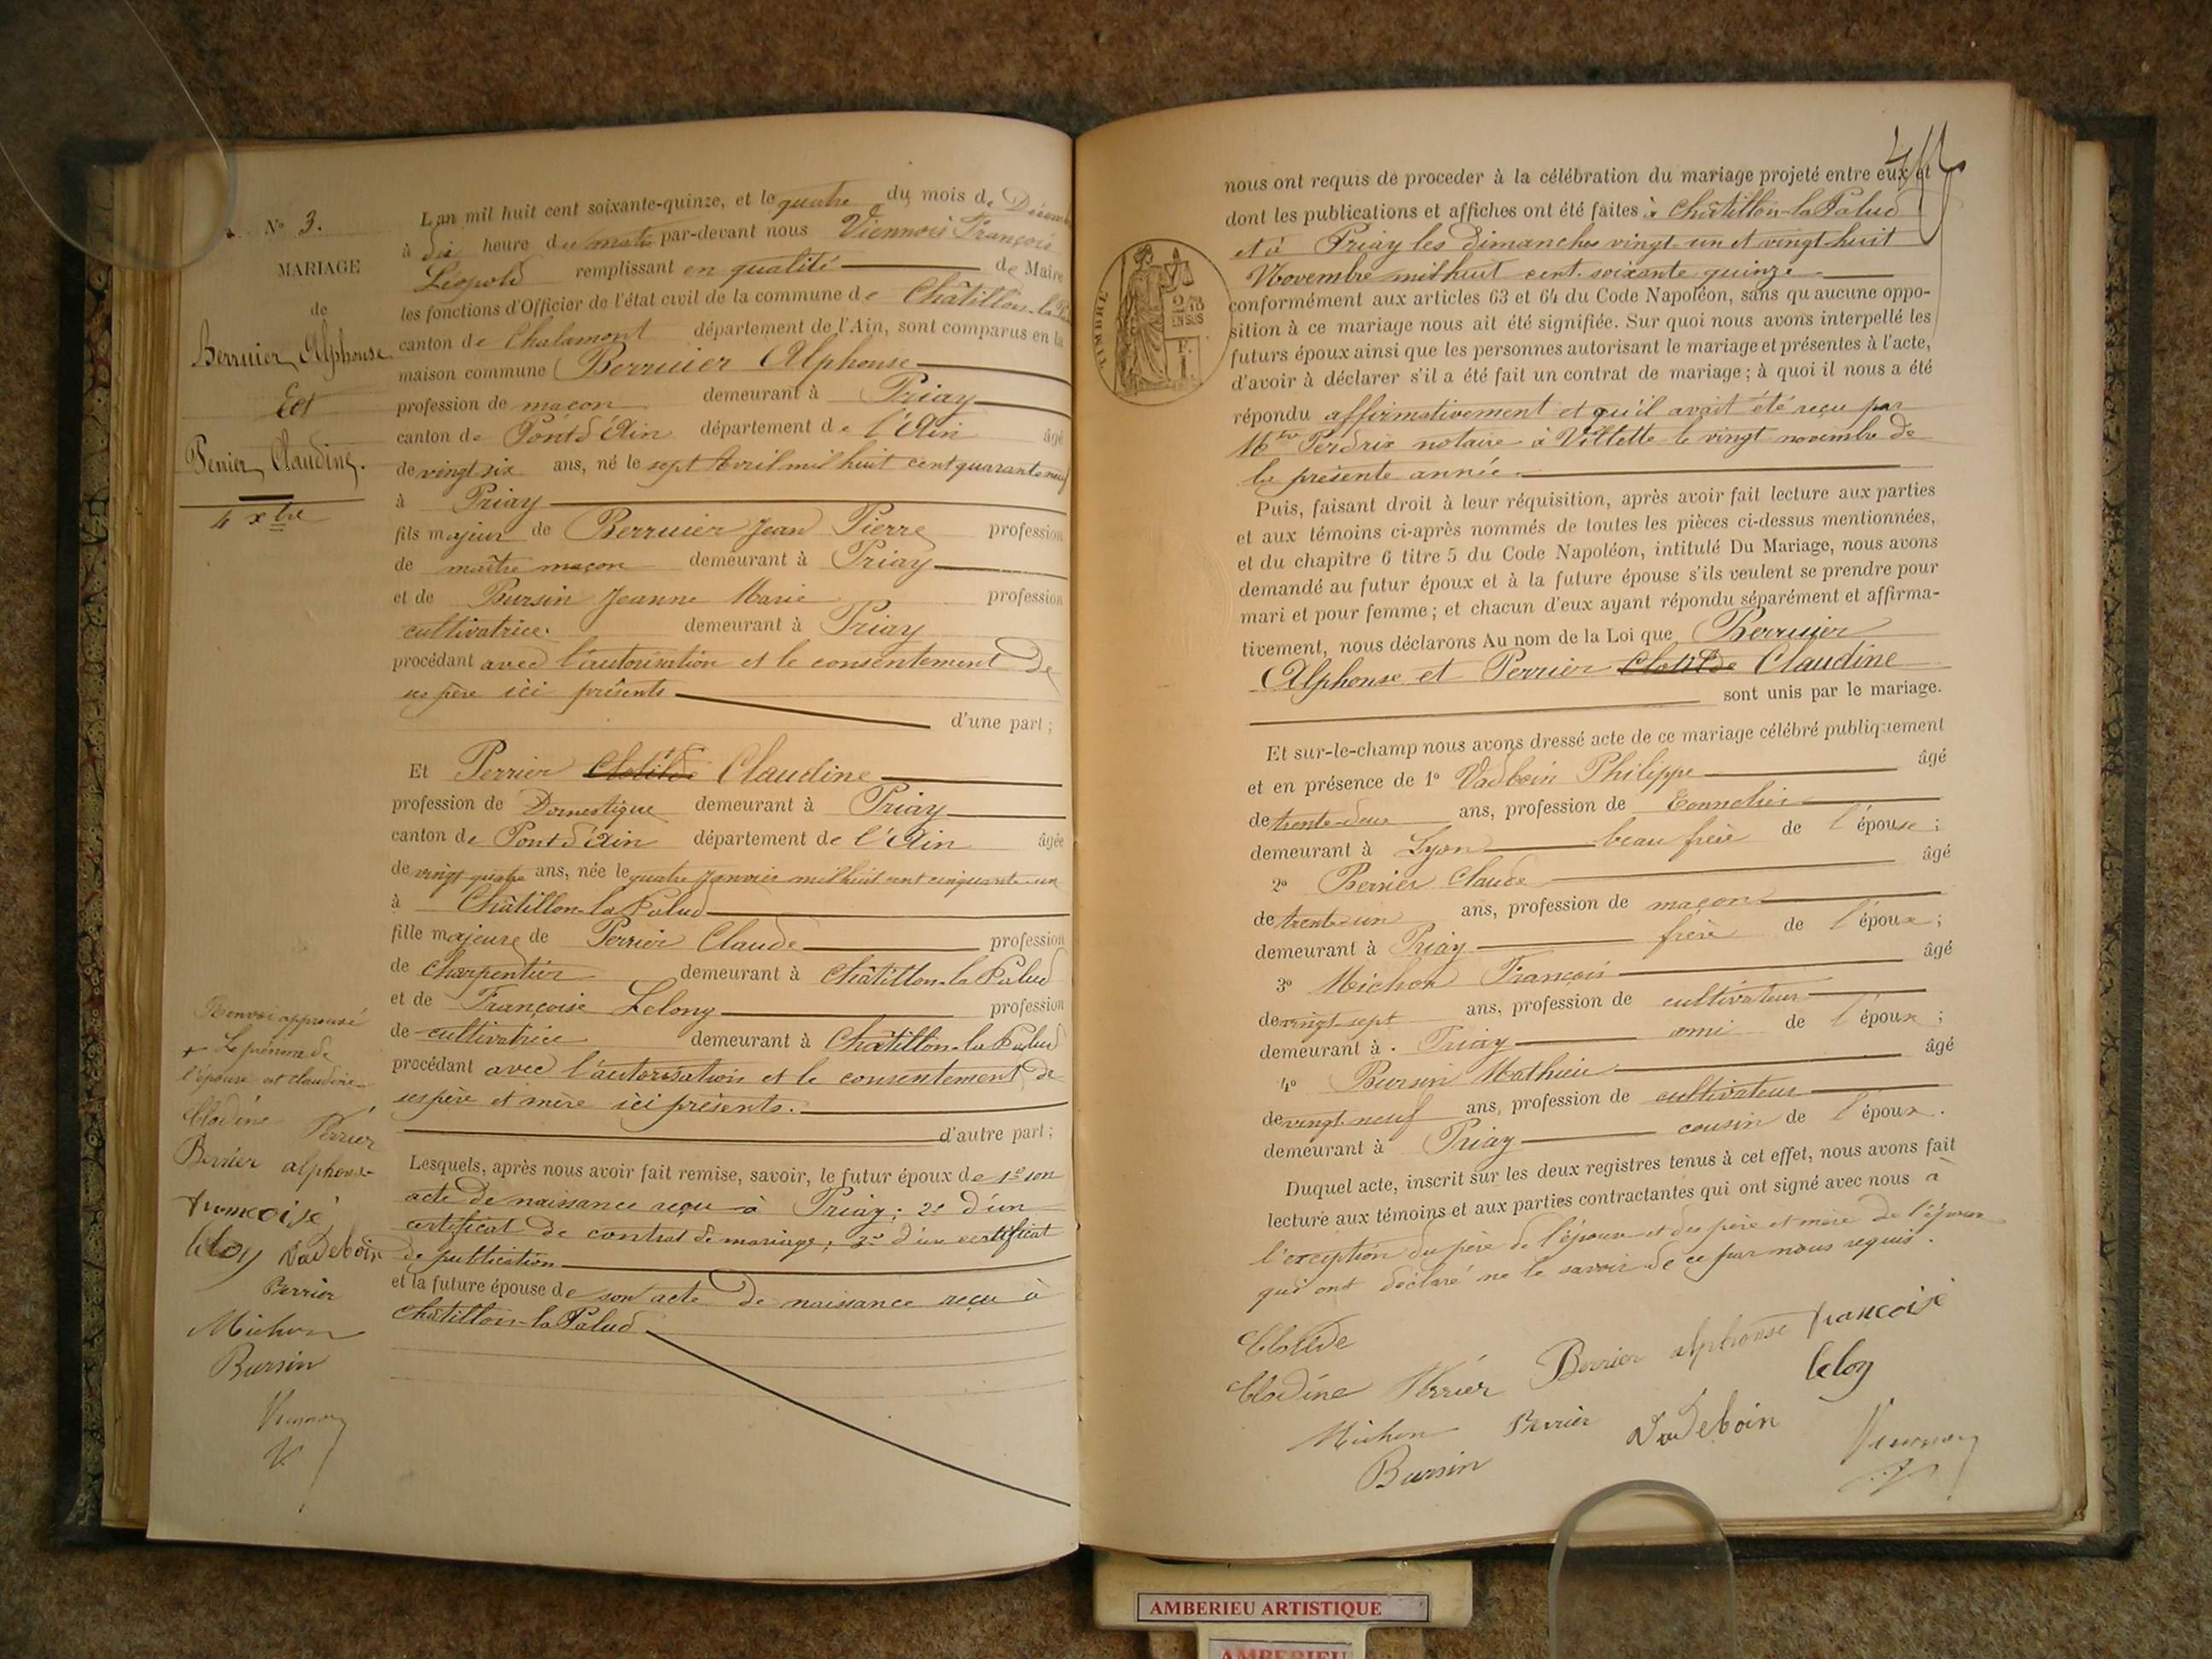 N° 3.
MARIAGE
de
Berruier Alphonse
Et
Perier Claudine.
4 xbre
L'an mil huit cent soixante-quinze, et le quatre du mois de Décembre
à dix heure du matin par-devant nous Viennois François
Léopold remplissant en qualité de Maire
les fonctions d'Officier de l'état civil de la commune de Châtillon-la-Palud
canton de Chalamont département de l'Ain, sont comparus en la
maison commune Berruier Alphonse
profession de maçon demeurant à Priay
canton de Pont d'Ain département de l'Ain âgé
de vingt six ans, né le sept Avril mil huit cent quarante neuf
à Priay
fils majeur de Berruier Jean Pierre profession
de maître maçon demeurant à Priay
et de Bursin Jeanne Marie profession
cultivatrice. demeurant à Priay
procédant avec l'autorisation et le consentement de
ses père ici présents
d'une part;
Et Perrier Clotilde Claudine
profession de Domestique demeurant à Priay
canton de Pont d'Ain département de l'Ain âgée
de vingt quatre ans, née le quatre Janvier mil huit cent cinquante-un
à Châtillon-la Palud
fille majeure de Perrier Claude profession
de charpentier demeurant à Châtillon-la Palud
et de Françoise Lelong profession
de cultivatrice demeurant à Châtillon-la Palud
procédant avec l'autorisation et le consentement de
ses père et mère ici présents.
d'autre part;
Lesquels, après nous avoir fait remise, savoir, le futur époux de 1° son
acte de naissance reçu à Priay; 2° d'un
certificat de contrat de mariage; 3° d'un certificat
de publication
et la future épouse de son acte de naissance reçu à
Châtillon-la Palud
Renvoi approuvé
+ Le prénom de
l'épouse est Claudine
Clodine Perrier
Berrier alphonse
francoise
leloy Vadeboin
Perrier
Michon
Bursin
nous ont requis de proceder à la célébration du mariage projeté entre eux et
dont les publications et affiches ont été faites à Châtillon-la Palud
et à Priay les dimanches vingt-un et vingt-huit
Novembre mil huit cent soixante quinze
conformément aux articles 63 et 64 du Code Napoléon, sans qu'aucune oppo-
sition à ce mariage nous ait été signifiée. Sur quoi nous avons interpellé les
futurs époux ainsi que les personnes autorisant le mariage et présentes à l'acte,
d'avoir à déclarer s'il a été fait un contrat de mariage; à quoi il nous a été
répondu affirmativement et qu'il avait été reçu par
Mtre Perdrix notaire à Villette le vingt novembre de
la présente année.
Puis, faisant droit à leur réquisition, après avoir fait lecture aux parties
et aux témoins ci-après nommés de toutes les pièces ci-dessus mentionnées,
et du chapitre 6 titre 5 du Code Napoléon, intitulé Du Mariage, nous avons
demandé au futur époux et à la future épouse s'ils veulent se prendre pour
mari et pour femme; et chacun d'eux ayant répondu séparément et affirma-
tivement, nous déclarons Au nom de la Loi que Berruier
Alphonse et Perrier Clotilde Claudine
sont unis par le mariage.
Et sur-le-champ nous avons dressé acte de ce mariage célébré publiquement
et en présence de 1° Vadboin Philippe âgé
de trente-deux ans, profession de Tonnelier
demeurant à Lyon beau frère de l'épouse;
2° Berrier Claude âgé
de trente-un ans, profession de maçon
demeurant à Priay frère de l'époux;
3° Michon François âgé
de vingt-sept ans, profession de cultivateur
demeurant à. Priay ami de l'époux;
4° Bursin Mathieu âgé
de vingt-neuf ans, profession de cultivateur
demeurant à Priay cousin de l'époux.
Duquel acte, inscrit sur les deux registres tenus à cet effet, nous avons fait
lecture aux témoins et aux parties contractantes qui ont signé avec nous à
l'exception du père de l'époux et des père et mère de l'épouse
qui ont déclaré ne le savoir de ce par nous requis.
Clotilde
Clodine Perrier Berrier alphonse francoise
leloy
Michon Perrier Vadeboin
Bursin
TIMBRE
2/10
EN SUS
1 F.
AMBERIEU ARTISTIQUE
AMBERIEU